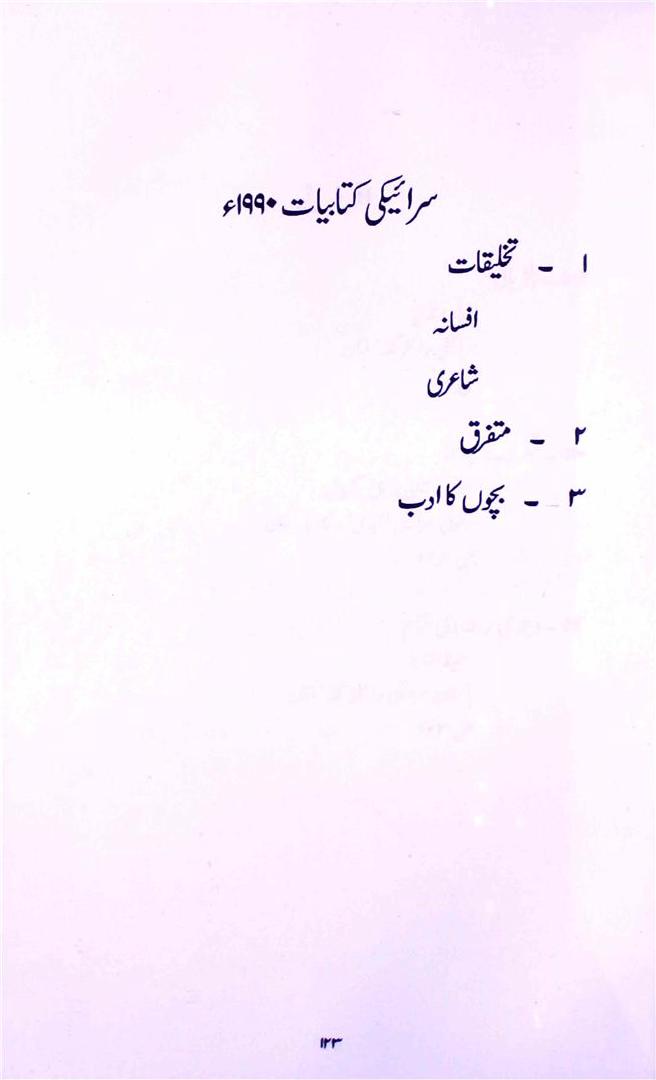 سرائیکی کتابیات ۱۹۹۰ء
۱ - تخلیقات
افسانہ
شاعری
۲ - متفرق
۳ - بچوں کا ادب
۱۲۳